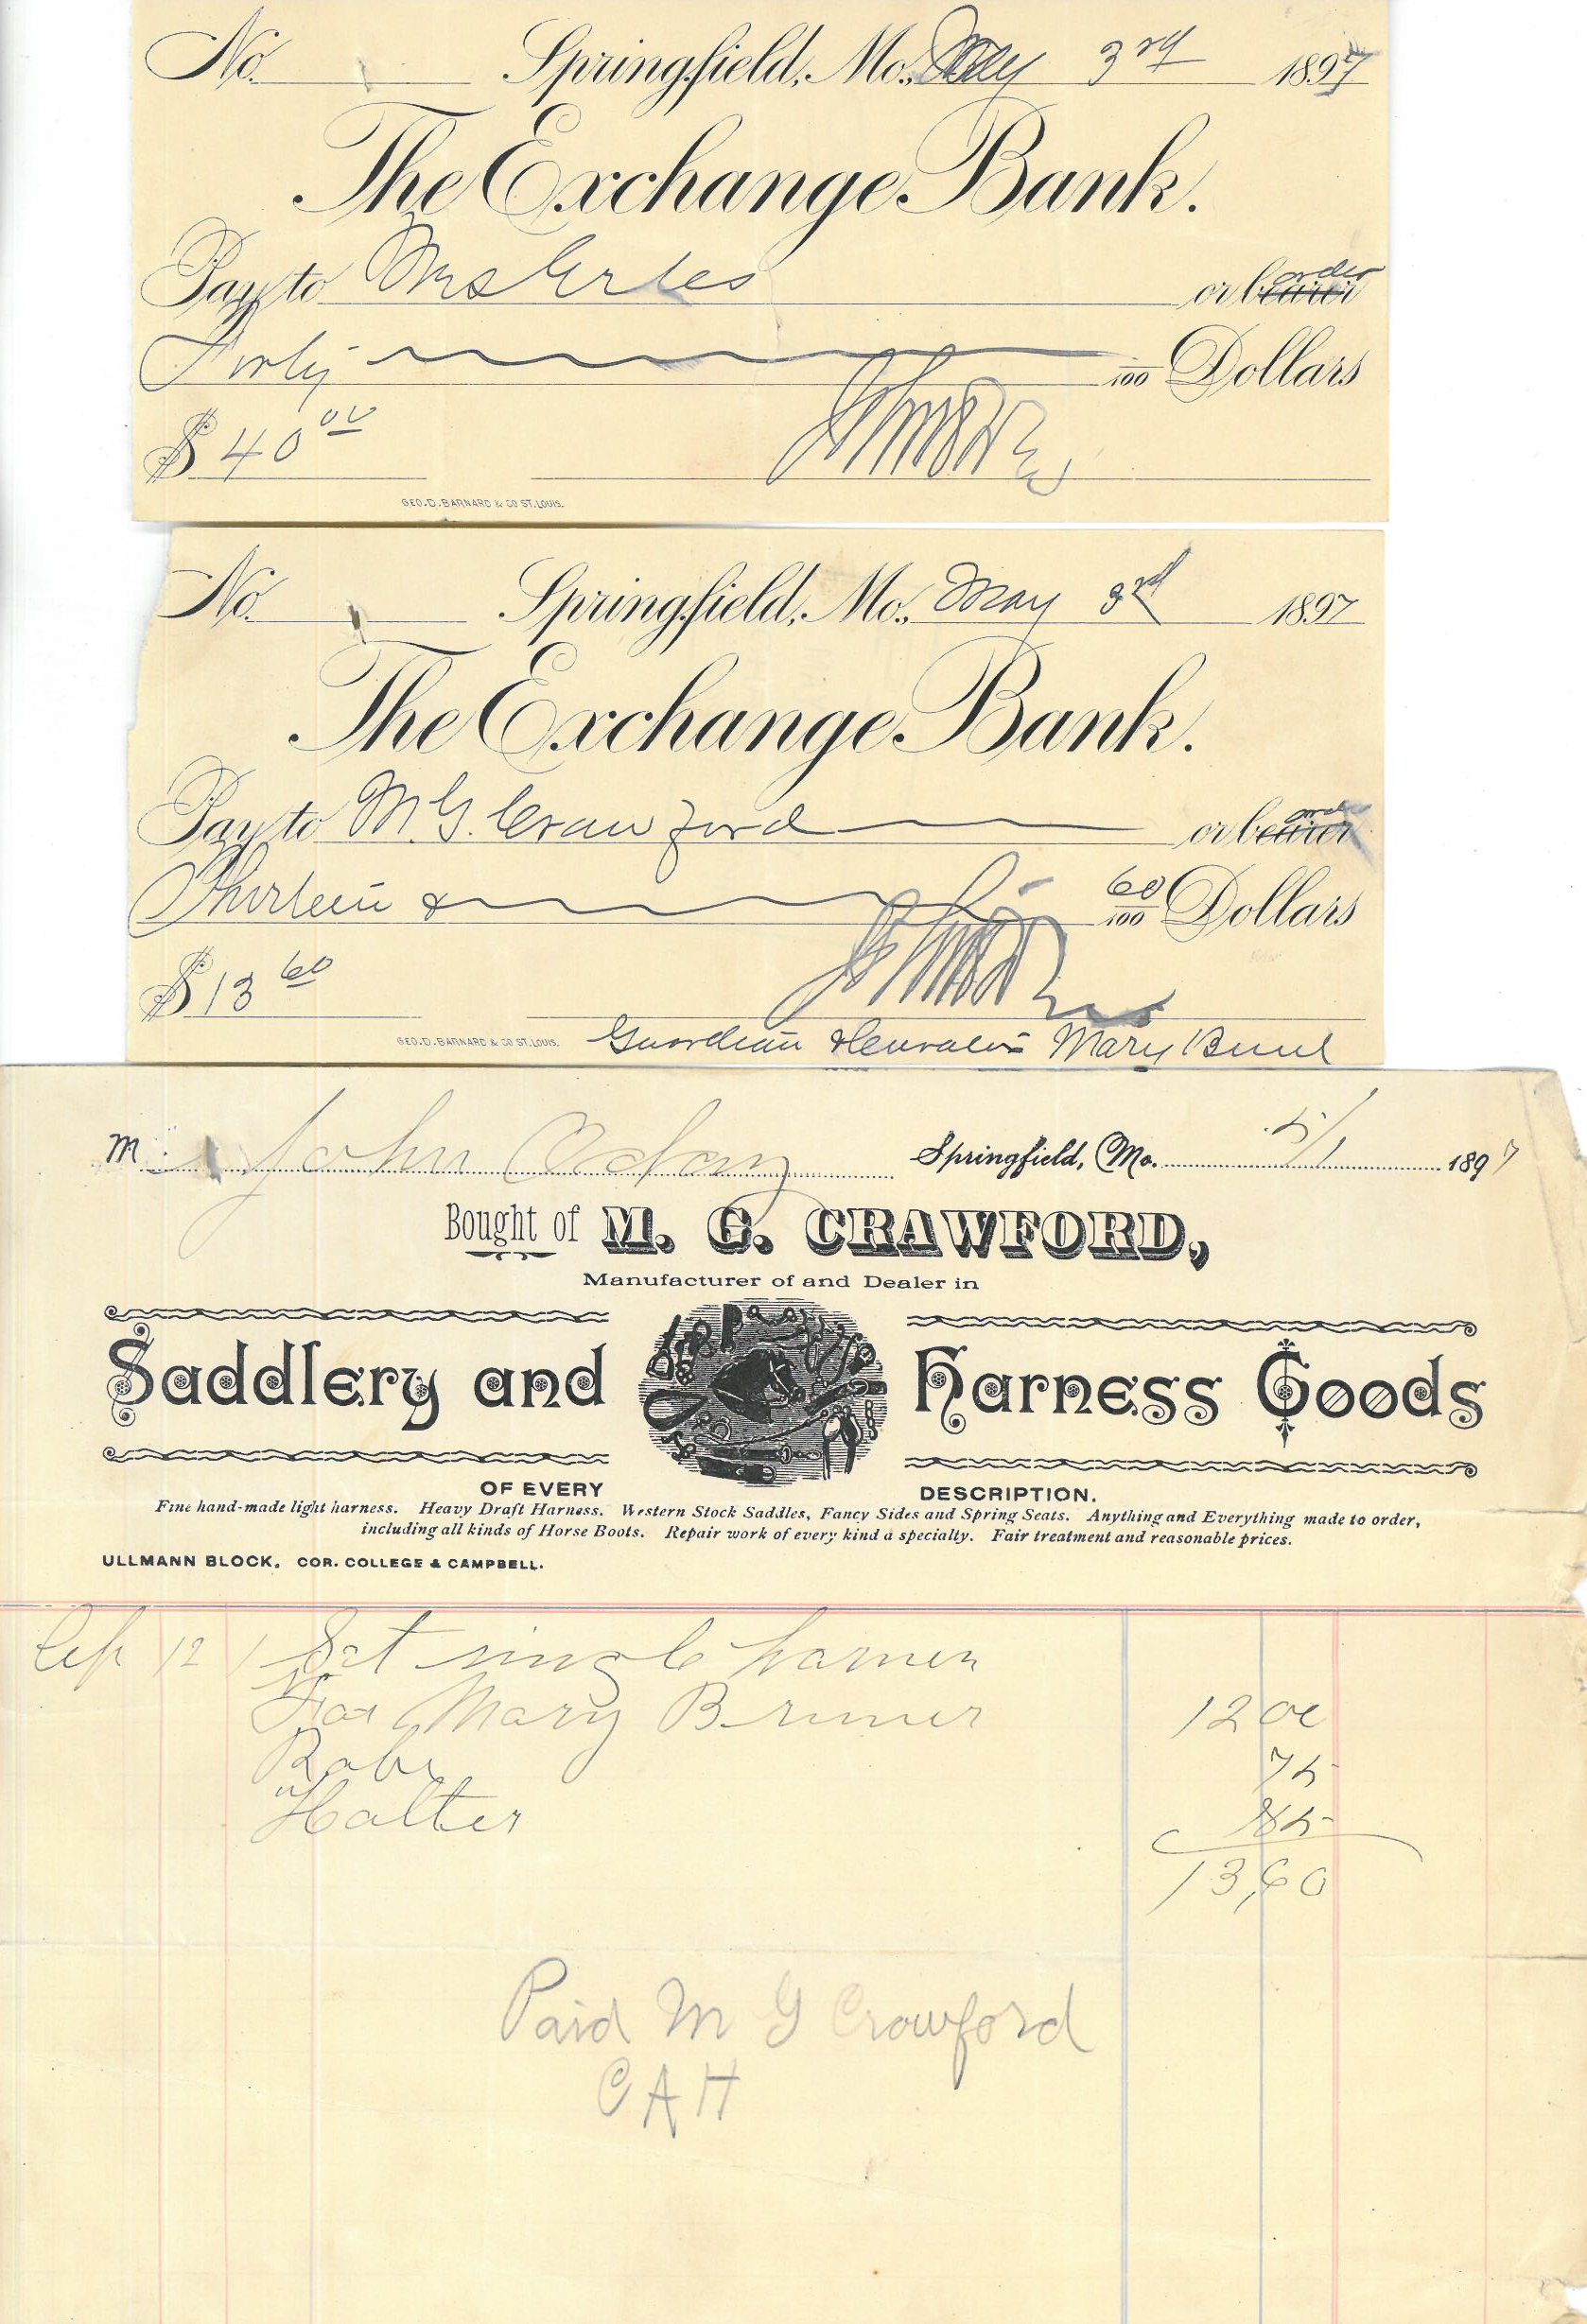 No. Springfield, Mo., May 3rd 1897
The Exchange Bank.
Pay to Mrs or order
Forty /100 Dollars
$ 40 00
GEO. D. BARNARD & CO ST. LOUIS.
No. Springfield, Mo., May 3rd 1897
The Exchange Bank.
Pay to M. G. Crawford or order
Thirteen & 60/100 Dollars
$ 13 60
GEO. D. BARNARD & CO ST. LOUIS. Guardian Mary
M John Springfield, Mo. 5/1 1897
Bought of M. G. CRAWFORD,
Manufacturer of and Dealer in
Saddlery and Harness Goods
OF EVERY DESCRIPTION.
Fine hand-made light harness. Heavy Draft Harness. Western Stock Saddles, Fancy Sides and Spring Seats. Anything and Everything made to order,
including all kinds of Horse Boots. Repair work of every kind a specially. Fair treatment and reasonable prices.
ULLMANN BLOCK, COR. COLLEGE & CAMPBELL.
12 1 Set single harness
For Mary Bruner 12 00
Robe 75
Halter 85
13,60
Paid M G Crawford
C A H